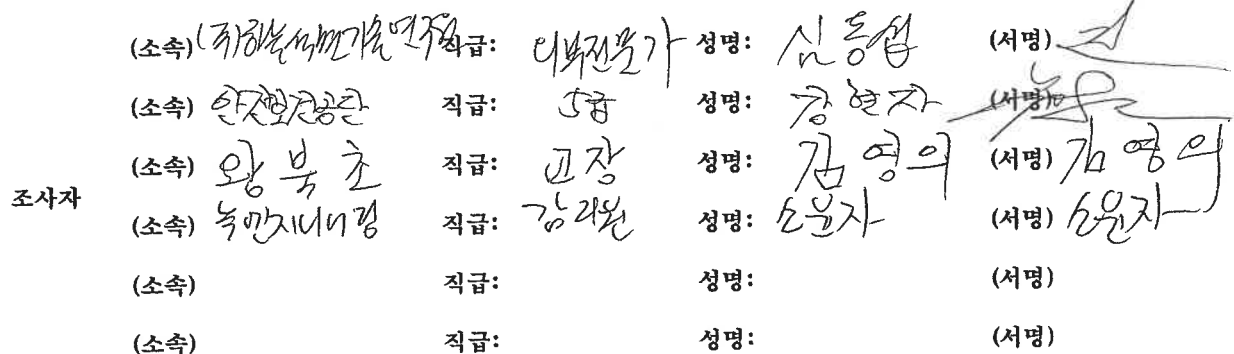 (소속) (주)하늘석면기술연구소 직급: 외부전문가 성명: 심동섭 (서명)
(소속) 안전보건공단 직급: 5급 성명: 강현자 (서명)
(소속) 왕북초 직급: 교장 성명: 김영의 (서명) 김영의
조사자
(소속) 직급: 감리원 성명: 소윤자 (서명) 소윤자
(소속) 직급: 성명: (서명)
(소속) 직급: 성명: (서명)